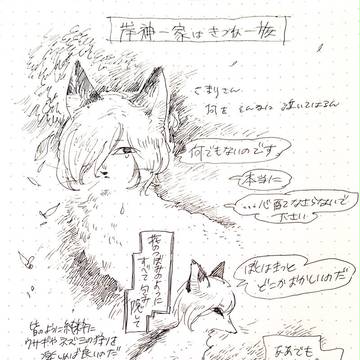 岸神一家はきつね一族
さまりさん
何を そんなに 泣いてはるん
何でもないのです
本当に
…心配なさらないで
下さい
花のつぼみのように
すべて
ぼくはきっと
どこかおかしいのだ
皆のように純粋に
ウサギやネズミの狩りを
なあでも